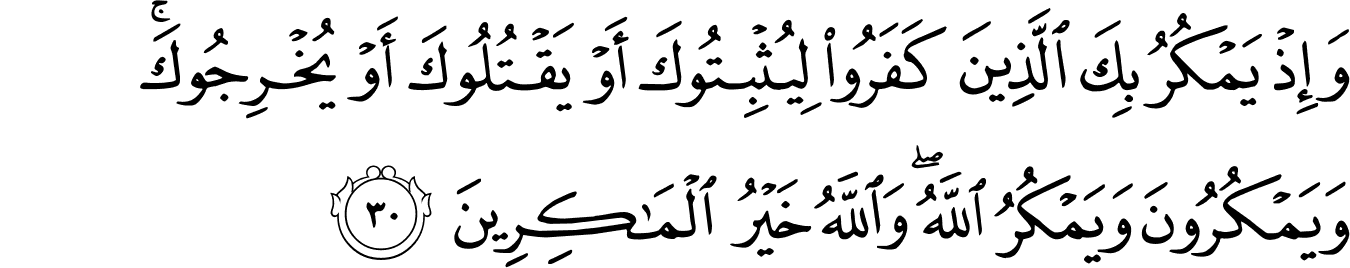 وَإِذْ يَمْكُرُ بِكَ ٱلَّذِينَ كَفَرُوا۟ لِيُثْبِتُوكَ أَوْ يَقْتُلُوكَ أَوْ يُخْرِجُوكَ ۚ
وَيَمْكُرُونَ وَيَمْكُرُ ٱللَّهُ ۖ وَٱللَّهُ خَيْرُ ٱلْمَـٰكِرِينَ ٣٠